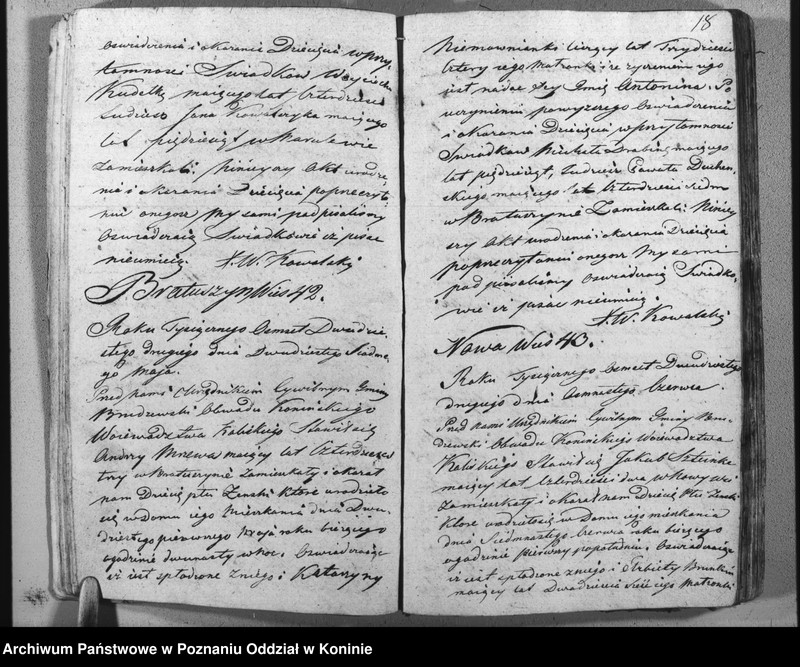 oswiadczenia i okazania Dziecięcia w przy
tomnosci Swiadkow Woyciecha
Kudełką maiącego lat trzydziesci
tudziesz Jana Kowalczyka maiącego
lat pięćdziesiąt w
zamieszkali. Ninieyszy Akt urodze
nia i okazania Dziecięcia poprzeczyta
niu onegosz My sami podpisalismy
Oswiadczaią Swiadkowie isz pisac
nieumieią. W. Kowalski
Bratuszyn Wies 42.
Roku Tysiącznego Osmset Dwudzie
stego drugiego dnia Dwudziestego Siodme
go Maja.
Przed nami Urzędnikiem Cywilnym Gminy
Brudzewski Obwodu Konińskiego
Woiewództwa Kaliskiego Stawił się
Andrzy Mrzewa maiący lat Czterdziesci
trzy w Bratuszynie Zamieszkały i okazał
nam Dziecię płci Zenski Ktore urodziło
się w domu iego Mieszkania dnia Dwu
dziestego pierwszego Maja roku bieżącego
ogodzinie dwunasty w noc. Oswiadczaiąc
isz iest spłodzone z niego i Katarzyny
18
liczący lat Trzydziesci
cztery iego Matronki isz zyczeniem iego
iest nadac Jey Jmię Antonina. Po
uczynieniu powyzszego Oswiadczenia
i okazania Dziecięcia w przytomnosci
Swiadkow Michała maiącego
lat pięćdziesiąt, tudziesz Pawła Duchen
skiego maiącego lat Czterdziesci siedm
w Bratuszynie Zamieszkali. Niniey
szy Akt urodzenia i okazania Dziecięcia
poprzeczytaniu onegosz My sami
podpisalismy oswiadczaią Swiadko
wie isz pisac nieumieią.
W. Kowalski
Nowa Wies 43.
Roku Tysiącznego Osmset Dwudziestego
drugiego dnia Osmnastego Czerwca.
Przed nami Urzędnikiem Cywilnym Gminy Bru
dzewski Obwodu Konińskiego Woiewództwa
Kaliskiego Stawił się Jakub Szteinke
maiący lat trzydziesci dwa w Nowy wsi
Zamieszkały i okazał nam Dziecię Płci Zenski
Ktore urodziło się w Domu iego mieszkania
dnia Siedmnastego Czerwca roku bieżącego
ogodzinie pierwszy popołudniu. Oswiadczaiąc
isz iest spłodzone z niego i Elzbiety
maiący lat Dwadziescia Sześć iego Matronki
Archiwum Państwowe w Poznaniu Oddział w Koninie